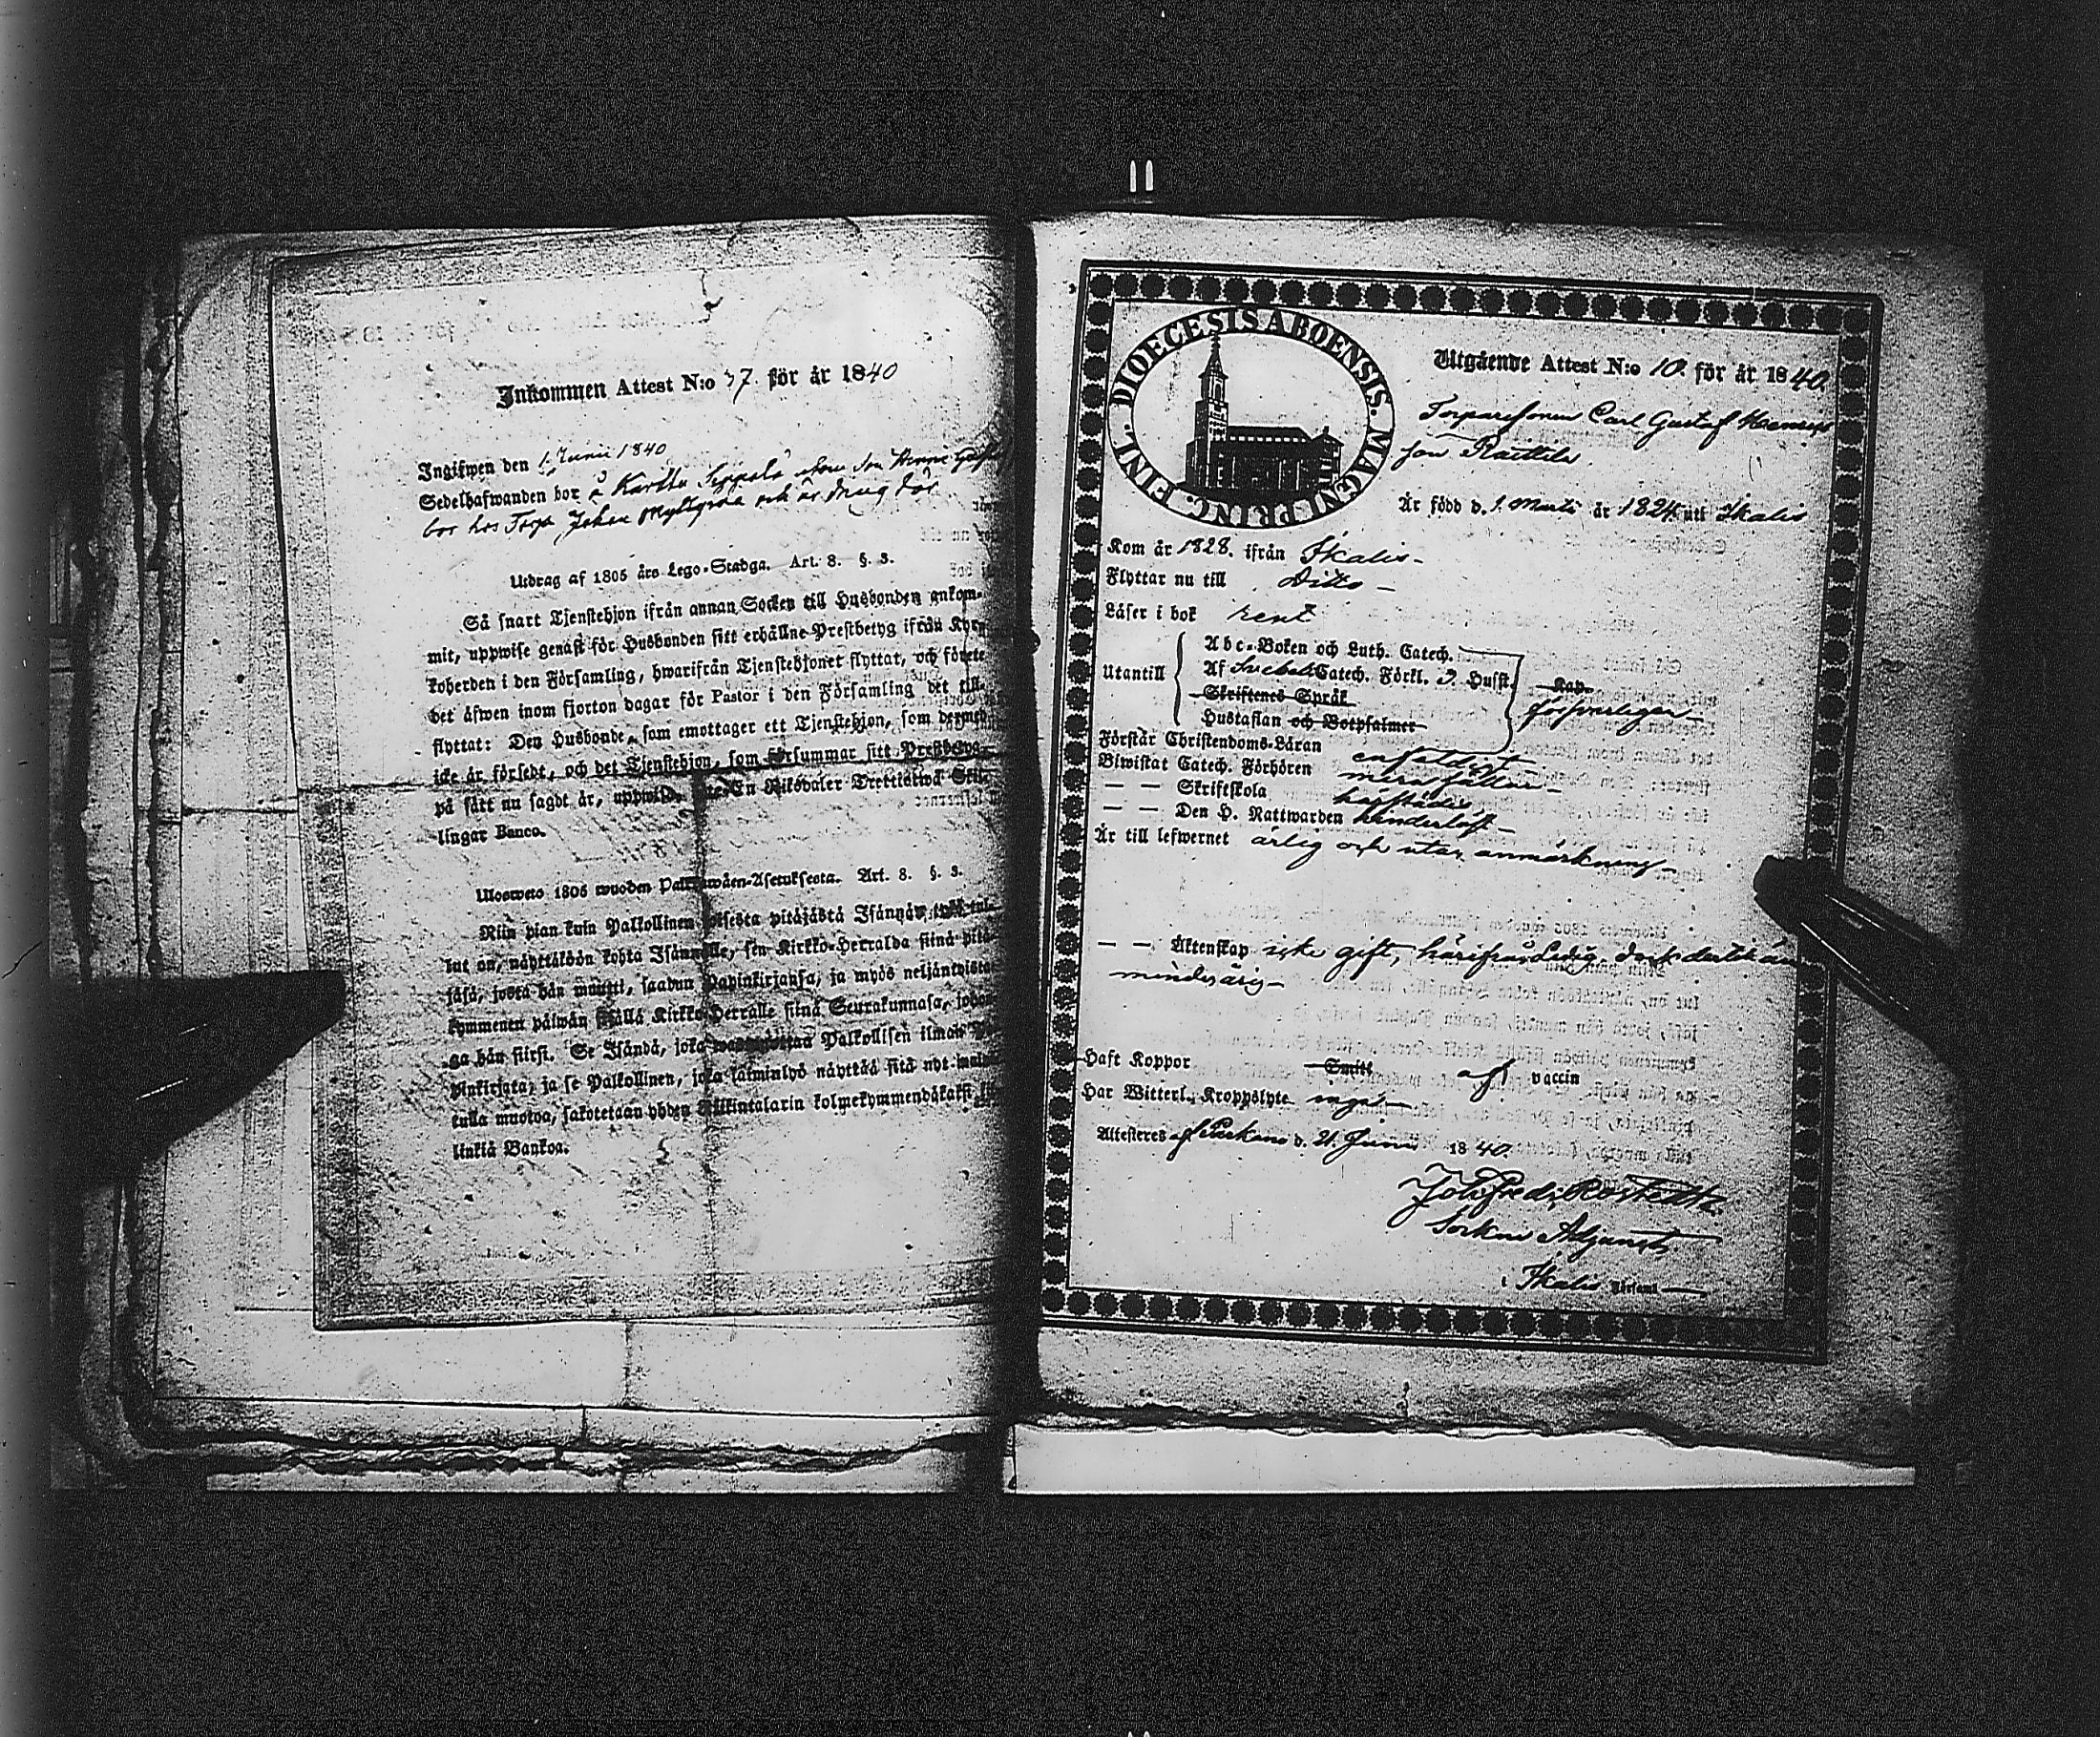 Inkommen Attest N:o 37. för år 1840
Ingifwen den 1 Junii 1840
Sedelhafwanden bor å Karttu Seppälä
bor hos Torp. Johan och är dräng
Utdrag af 1805 års Lego-Stadga. Art. 8. §. 3.
Så snart Tjenstehjon ifrån annan Socken till Husbonden ankom-
mit, uppwise genast för Husbonden sitt erhållne Prestbetyg ifrån Kyr-
koherden i den Församling, hwarifrån Tjenstehjonet flyttat, och förete
det äfwen inom fjorton dagar för Pastor i den Församling det till-
flyttat: Den Husbonde, som emottager ett Tjenstehjon, som dermed
icke är försedt, och det Tjenstehjon, som försummar sitt Prestbetyg
på sätt nu sagdt är, uppwisa, En Riksdaler Trettiotwå Skil-
lingar Banco.
Ulosweto 1805 wuoden Palkkawäen-Asetuksesta. Art. 8. §. 3.
Niin pian kuin Palkollinen toisesta pitäjästä Isännän tykö tul-
lut on, näyttäköön kohta Isännälle, sen Kirkko-Herralda siinä pitä-
jäsä, josta hän muutti, saadun Papinkirjansa, ja myös neljäntoista-
kymmenen päiwän sisällä Kirkko-Herralle siinä Seurakunnasa, johon-
ga hän siirsi. Se Isändä, joka wastanottaa Palkollisen ilman Pa-
pinkirjata; ja se Palkollinen, joka laiminlyö näyttää sitä nyt maini-
tulla muotoa, sakotetaan yhden Riikintalarin kolmekymmendäkaksi kil-
linkiä Bankoa.
FINL. DIOECESIS ABOENSIS. MAGNI PRINC.
Utgående Attest N:o 10. för år 1840.
Torparesonen Carl Gustaf Henriks
son Raittila.
Är född d. 1. Martii år 1824 uti Ikalis
Kom år 1828. ifrån Ikalis -
Flyttar nu till Ditto -
Läser i bok rent
Utantill
Abc-Boken och Luth. Catech.
Af Svebelii Catech. Förkl. 3. Hufst. Kap.
Skriftenes Språk
Hustaflan och Botpsalmer
försvarligen -
Förstår Christendoms-Läran enfaldigt -
Biwistat Catech. Förhören merendels -
— — Skriftskola härstädes
— — Den H. Nattwarden hinderlöst -
Är till lefwernet ärlig och utan anmärkning -
— — Äktenskap icke gift, härifrån ledig, dock dertill än
minderårig -
Haft Koppor Smitt af vaccin
Har Witterl., Kroppslyte inga -
Attesteres af Parkano d. 21. Junii 1840.
Joh. Fredr. Rostedt
Sockne Adjunct
i Ikalis Församl.